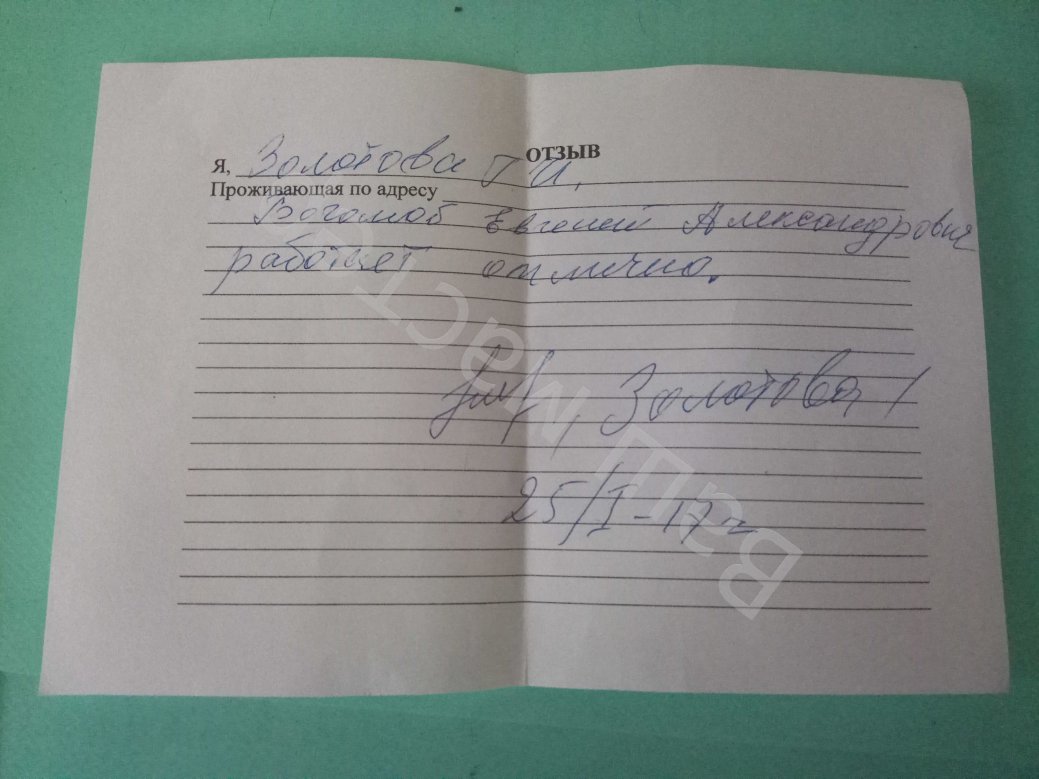 ОТЗЫВ
Я, Золотова Г И.
Проживающая по адресу
Богомов Евгений Александрович
работает отлично.
Золотова /
25/I-17 г
Ваш Маст